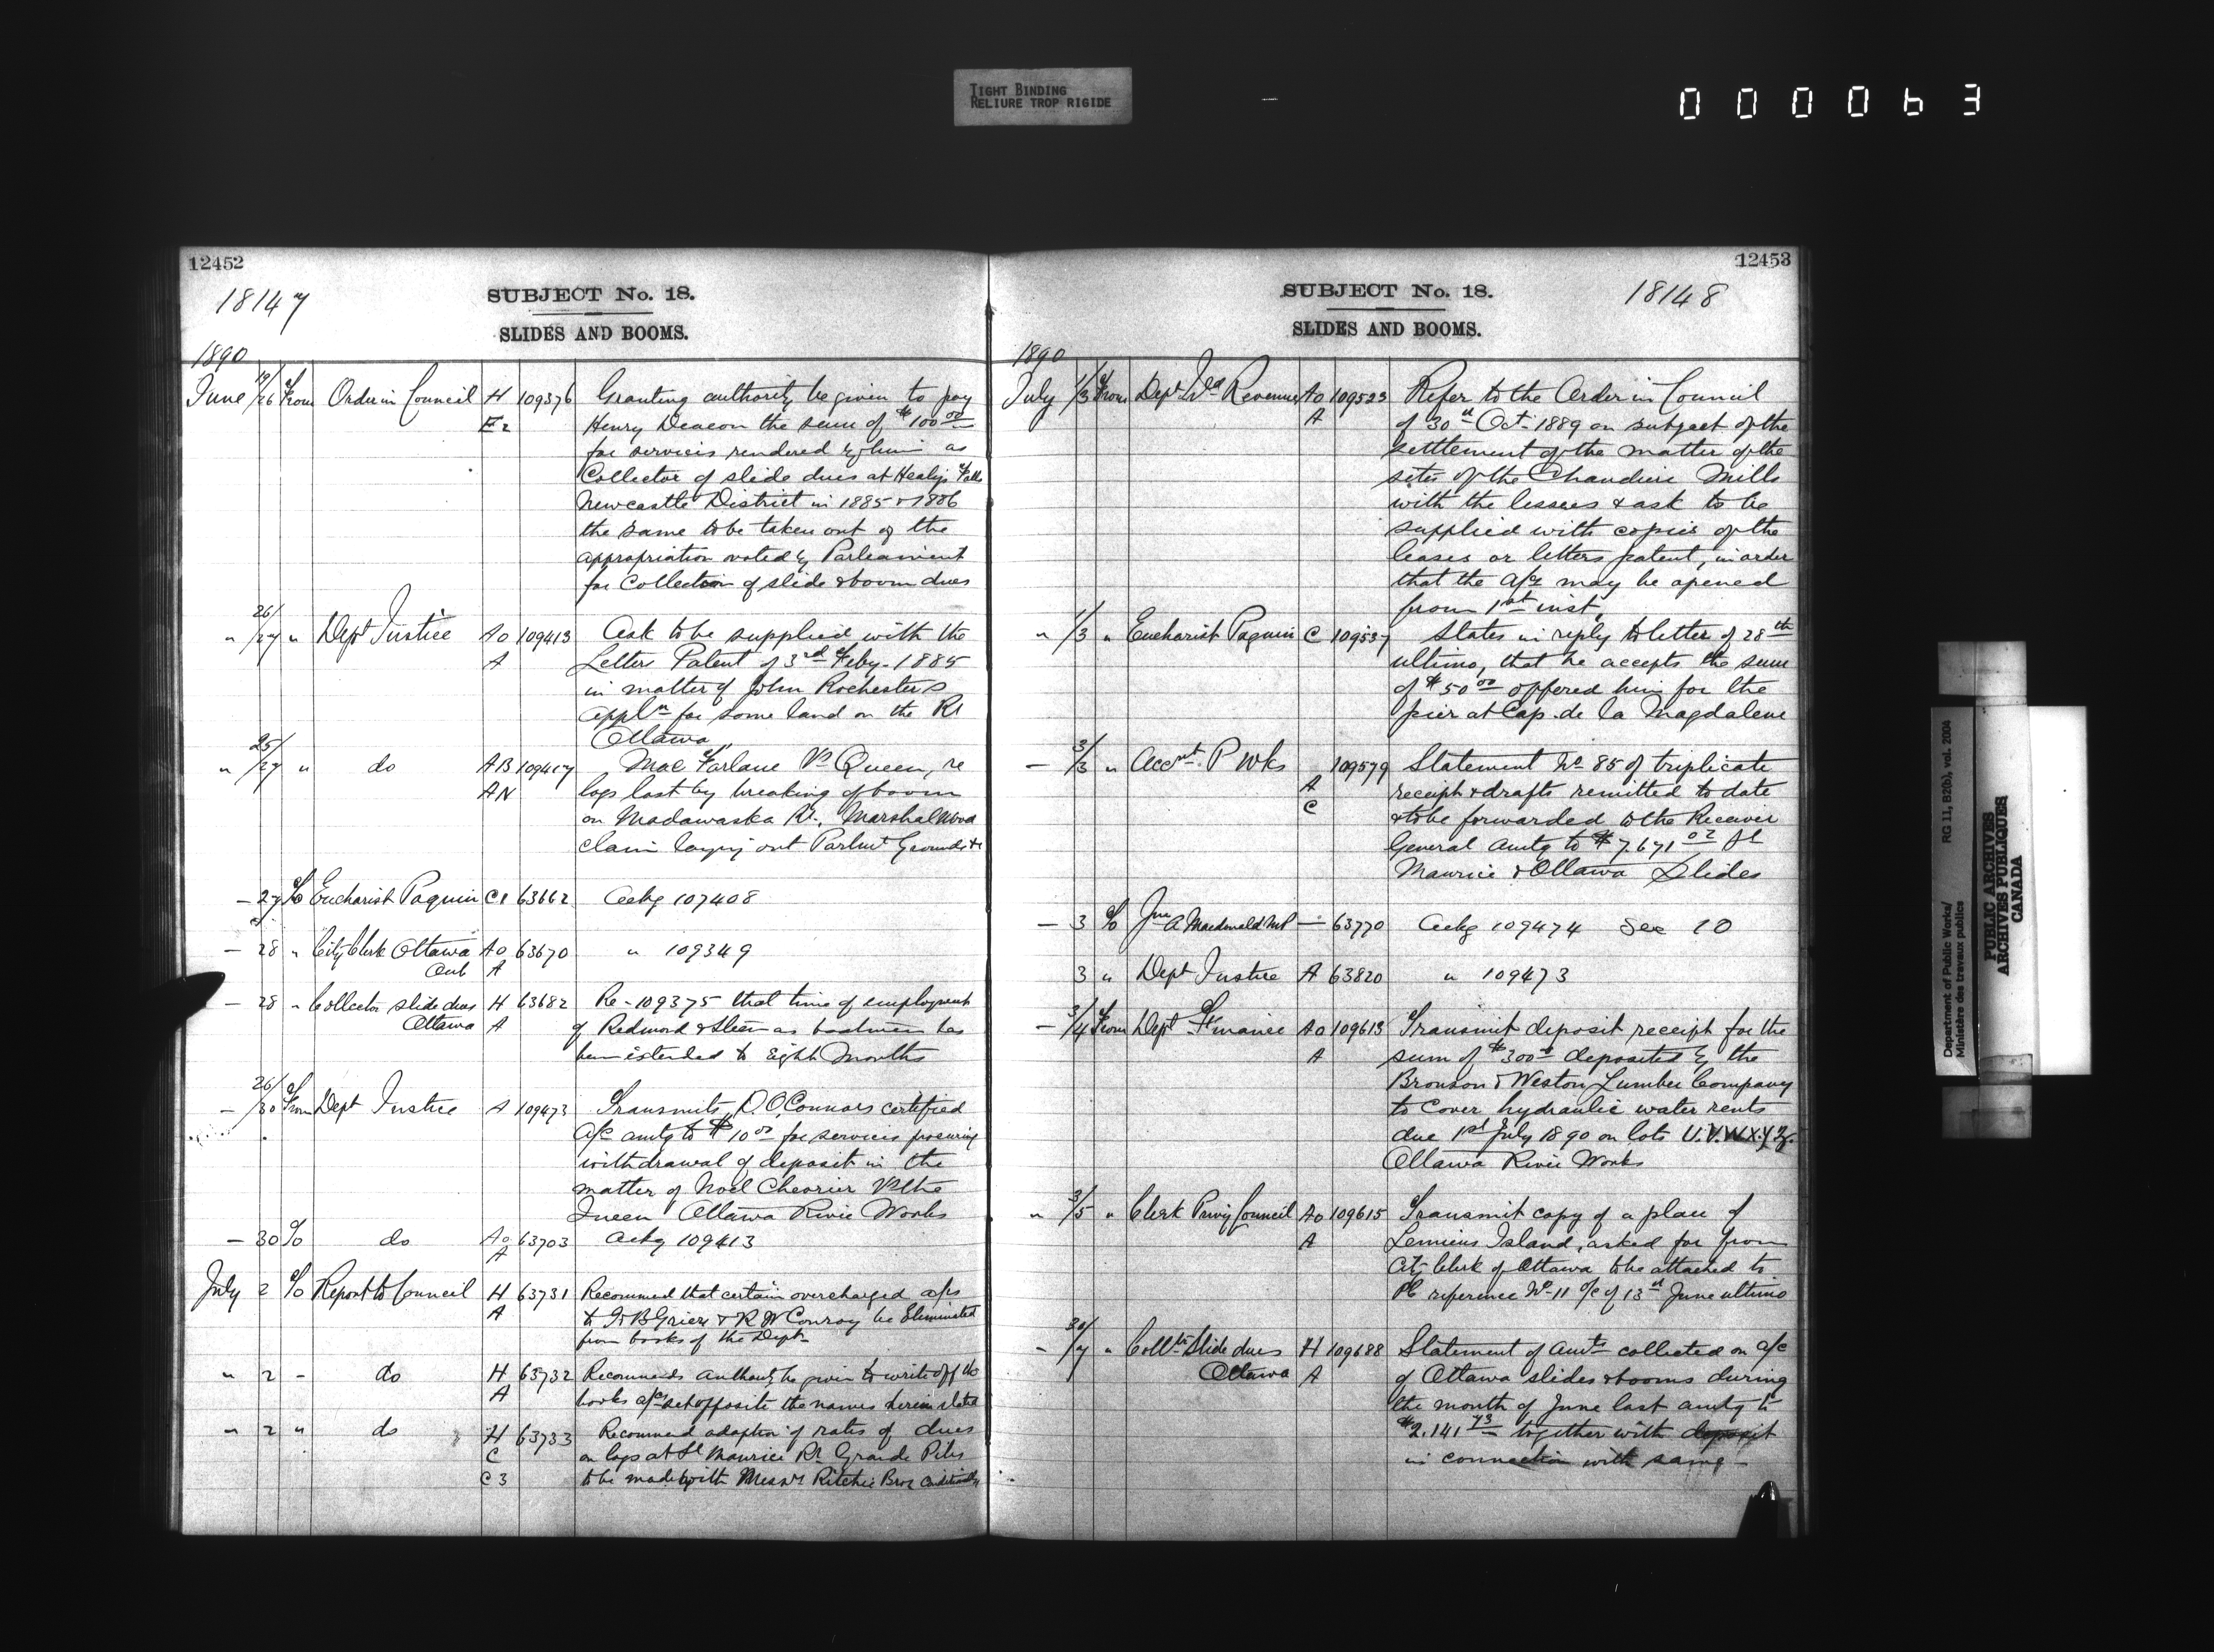 TIGHT BINDING
RELIURE TROP RIGIDE
000063
12452
18147
SUBJECT No. 18.
SLIDES AND BOOMS.
1890
June 19/26 From Order in Council H 109376 Granting authority be given to pay
E2 Henry Deacon the sum of $100 00
for services rendered by him as
Collector of slide dues at Healys Falls
Newcastle District in 1885 & 1886
the same to be taken out of the
appropriation voted by Parliament
for Collection of slide & boom dues
" 26/27 " Dept Justice Ao 109413 Ask to be supplied with the
A Letters Patent of 3rd Feby. 1885
in matter of John Rochesters
appln for some land on the Rr
Ottawa
" 25/27 " do AB 109417 MacFarlane Vs Queen, re
AN logs lost by breaking of boom
on Madawaska Rr. Marshal Wood
claim laying out Parlmt Grounds &c
- 27 To Eucharist Paquin C1 63662 Ackg 107408
- 28 " City Clerk Ottawa Ao 63670 " 109349
Ont A
- 28 " Collector slide dues H 63682 Re-109375 that time of employment
Ottawa A of Redmond & Steen as boatmen has
been extended to Eight Months
- 26/30 From Dept Justice A 109473 Transmits D. O'Connors certified
a/c amtg to $10 00 for services procuring
withdrawal of deposit in the
matter of Noel Chevrier Vs the
Queen Ottawa River Works
- 30 To do Ao 63703 Ackg 109413
A
July 2 To Report to Council H 63731 Recommend that certain overcharged a/cs
A to G B Grier & R W Conroy be Eliminated
from books of the Dept-
" 2 - do H 63732 Recommends authority be given to write off the
A books a/cs set opposite the names therein stated
" 2 " do H 63733 Recommend adoption of rates of dues
C on logs at St Maurice Rr Grande Piles
C3 to be made with Messrs Ritchie Bros conditionally
12453
SUBJECT No. 18.
18148
SLIDES AND BOOMS.
1890
July 1/3 From Dept Ild Revenue Ao 109523 Refer to the Order in Council
A of 30th Oct. 1889 on subject of the
settlement of the matter of the
sites of the Chaudiere Mills
with the lessees & ask to be
supplied with copies of the
leases or letters patent, in order
that the a/cs may be opened
from 1st inst,
" 1/3 " Eucharist Paquin C 109537 States in reply to letter of 28th
ultimo, that he accepts the sum
of $50 00 offered him for the
pier at Cap. de la Magdalene
- 3/3 " Accnt. P Wks 109579 Statement No 85 of triplicate
A receipts & drafts remitted to date
C & to be forwarded to the Receiver
General amtg to $7.671 02 St
Maurice & Ottawa Slides
- 3 To Jno A Macdonald MP - 63770 Ackg 109474 See 10
3 " Dept Justice A 63820 " 109473
- 3/4 From Dept Finance Ao 109613 Transmit deposit receipt for the
A sum of $300 00 deposited by the
Bronson & Weston Lumber Company
to cover hydraulic water rents
due 1st July 1890 on lots U.V.W.X.Y.Z.
Ottawa River Works
" 3/5 " Clerk Privy Council Ao 109615 Transmit copy of a plan of
A Lemieux Island, asked for from
City Clerk of Ottawa to be attached to
PC reference No 11 o/c of 13th June ultimo
- 30/7 " Collr Slide dues H 109688 Statement of amts collected on a/c
Ottawa A of Ottawa slides & booms during
the month of June last amtg to
$2.141 73 together with deposit
in connection with same -
Department of Public Works/
Ministère des travaux publics
RG 11, B2(b), vol. 2004
PUBLIC ARCHIVES
ARCHIVES PUBLIQUES
CANADA